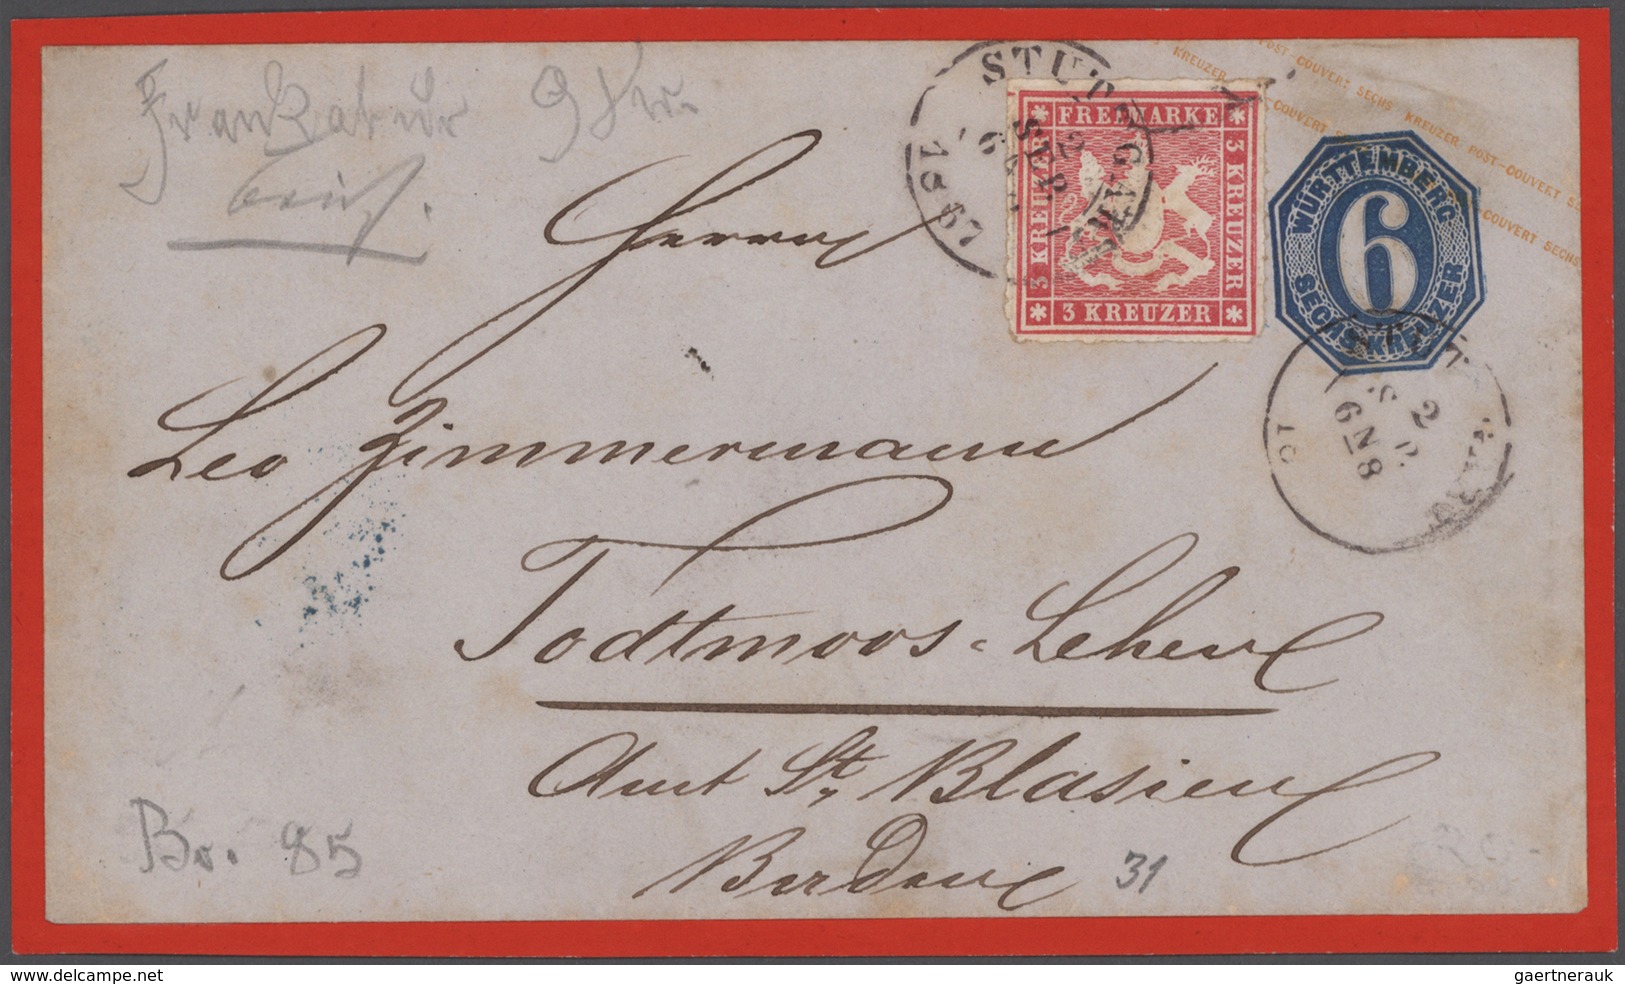 Frankatur 9 Kr.
Brief.
STUTTGART
2 SEP.
1867
FREIMARKE
3 KREUZER
3 KREUZER
3 KREUZER
POST COUVERT SECHS KREUZER POST-COUVERT
KREUZER
COUVERT SECHS
COUVERT SECHS
WÜRTTEMBERG
6
SECHS KREUZER
2
6N8
Herrn
Leo Zimmermann
Todtmoos-Lehen
Amt St. Blasien
Baden
31
Br. 85
delcampe.net
gaertnerauk